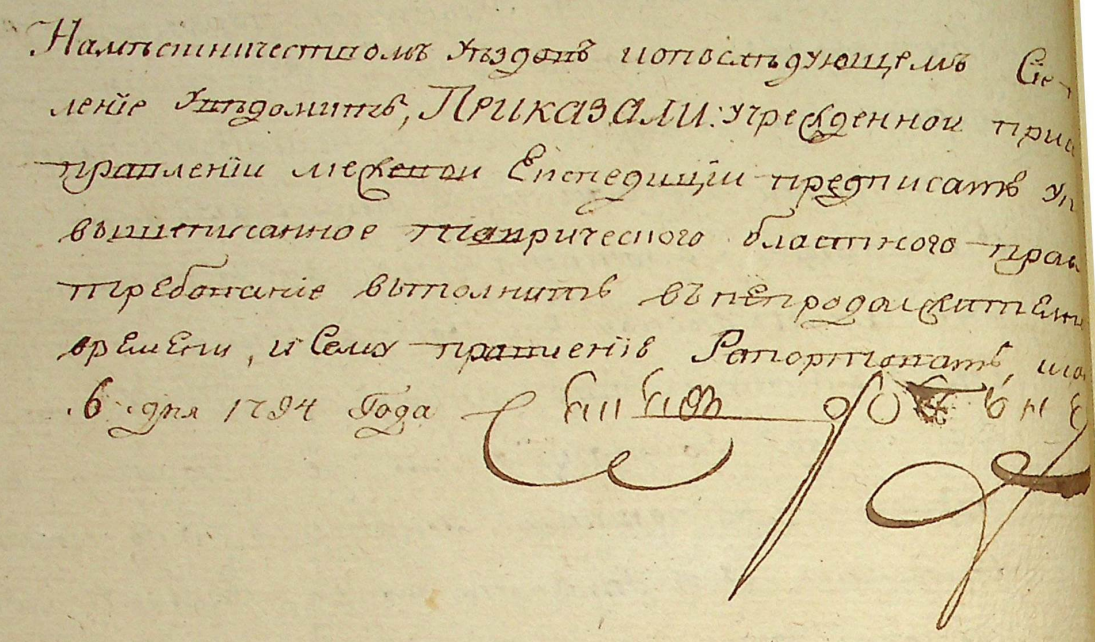 Намѣстничествомъ уѣздовъ ипопослѣдующемъ Сіе
вленіе Увѣдомить, ПРИКАЗАЛИ: учрежденной при
правленіи межевой Експедиціи предписать
вышеписанное Таврическаго бластного прав
требованіе выполнить въ непродолжителн
времени, и Сему правленію Рапортовать,
6 дня 1794 Года